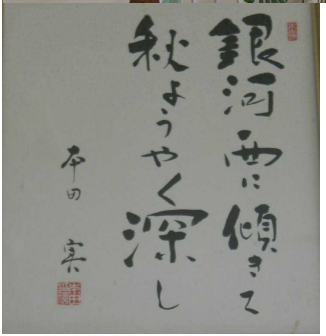 銀河西に傾きて
秋ようやく深し
本田 実